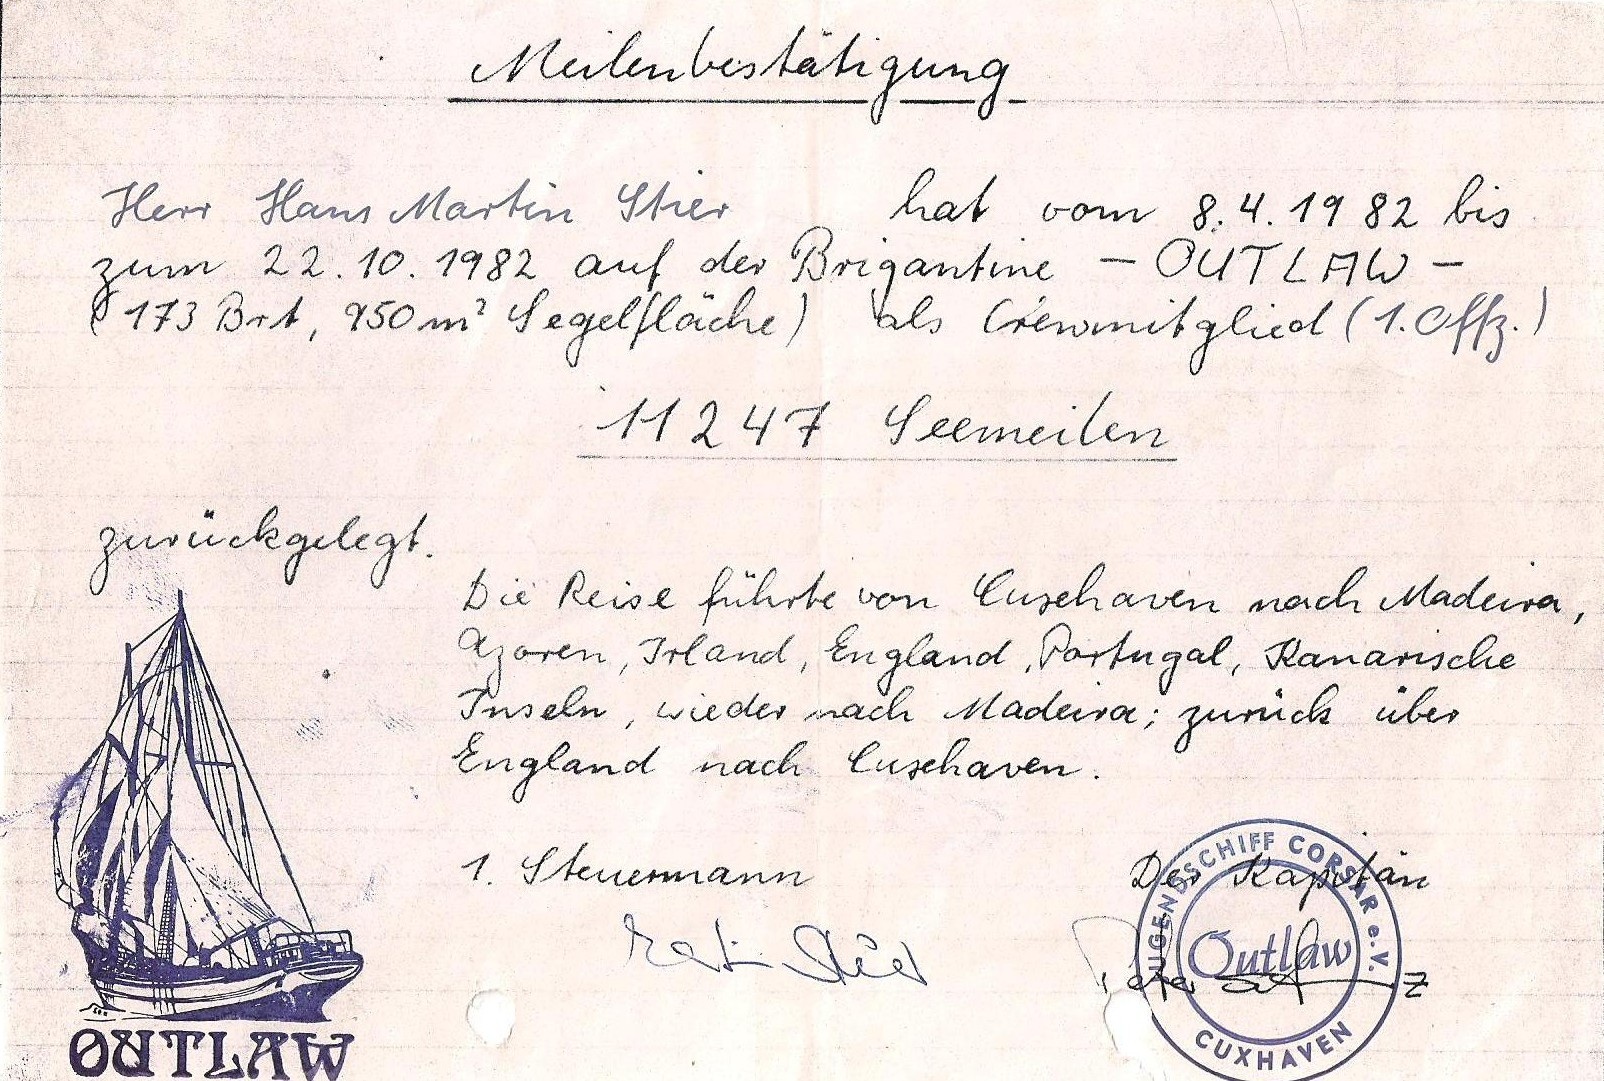 Meilenbestätigung
Herr Hans Martin Stier hat vom 8.4.1982 bis
zum 22.10.1982 auf der Brigantine – OUTLAW –
(173 Brt, 950 m² Segelfläche) als Crewmitglied (1. Offz.)
11247 Seemeilen
zurückgelegt.
Die Reise führte von Cuxhaven nach Madeira,
Azoren, Irland, England, Portugal, Kanarische
Inseln, wieder nach Madeira; zurück über
England nach Cuxhaven.
1. Steuermann
Der Kapitän
JUGENDSCHIFF CORSAR e.V.
Outlaw
CUXHAVEN
OUTLAW